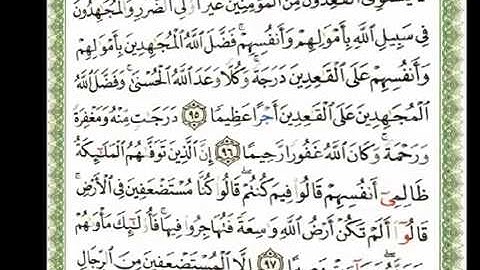 لَّا يَسْتَوِى ٱلْقَٰعِدُونَ مِنَ ٱلْمُؤْمِنِينَ غَيْرُ أُو۟لِى ٱلضَّرَرِ وَٱلْمُجَٰهِدُونَ
فِى سَبِيلِ ٱللَّهِ بِأَمْوَٰلِهِمْ وَأَنفُسِهِمْ ۚ فَضَّلَ ٱللَّهُ ٱلْمُجَٰهِدِينَ بِأَمْوَٰلِهِمْ
وَأَنفُسِهِمْ عَلَى ٱلْقَٰعِدِينَ دَرَجَةً ۚ وَكُلًّا وَعَدَ ٱللَّهُ ٱلْحُسْنَىٰ ۚ وَفَضَّلَ ٱللَّهُ
ٱلْمُجَٰهِدِينَ عَلَى ٱلْقَٰعِدِينَ أَجْرًا عَظِيمًا ٩٥ دَرَجَٰتٍ مِّنْهُ وَمَغْفِرَةً
وَرَحْمَةً ۚ وَكَانَ ٱللَّهُ غَفُورًا رَّحِيمًا ٩٦ إِنَّ ٱلَّذِينَ تَوَفَّىٰهُمُ ٱلْمَلَٰٓئِكَةُ
ظَالِمِىٓ أَنفُسِهِمْ قَالُوا۟ فِيمَ كُنتُمْ ۖ قَالُوا۟ كُنَّا مُسْتَضْعَفِينَ فِى ٱلْأَرْضِ ۚ
قَالُوٓا۟ أَلَمْ تَكُنْ أَرْضُ ٱللَّهِ وَٰسِعَةً فَتُهَاجِرُوا۟ فِيهَا ۚ فَأُو۟لَٰٓئِكَ مَأْوَىٰهُمْ
٩٧ إِلَّا ٱلْمُسْتَضْعَفِينَ مِنَ ٱلرِّجَالِ